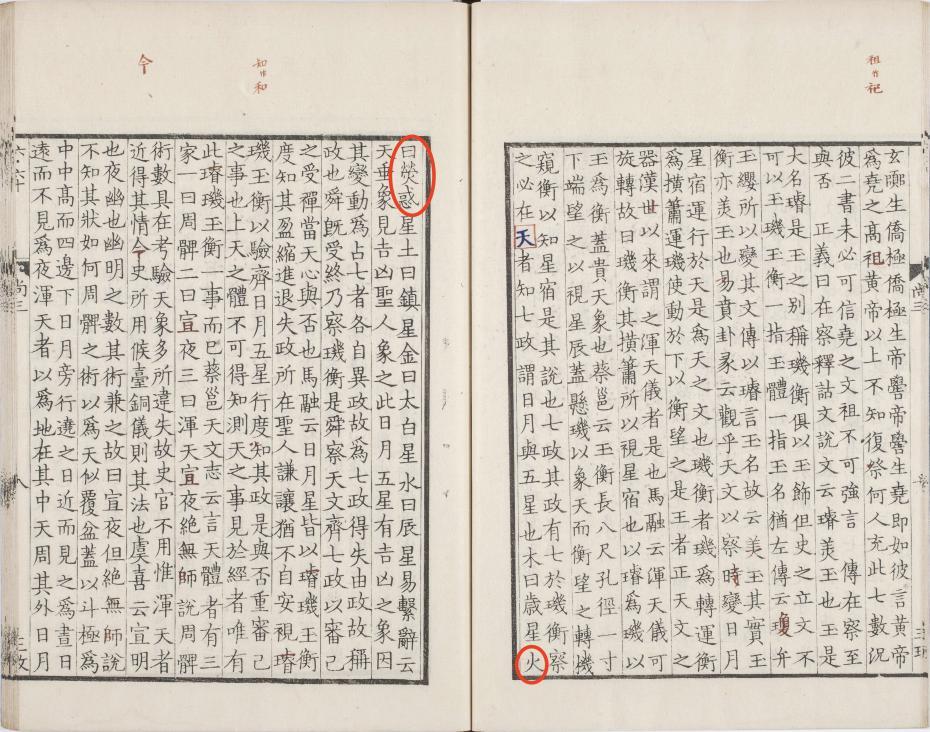 祖作祀
玄囂生僑極僑極生帝嚳帝嚳生堯即如彼言黃帝
為堯之高祖黃帝以上不知復祭何人充此七數況
彼二書未必可信堯之文祖不可強言　傳在察至
與否　正義曰在察釋詁文說文云璿美玉也玉是
大名璿是玉之別稱璣衡俱以玉飾但史之立文不
可以玉璣玉衡一指玉體一指玉名猶左傳云瓊弁
玉纓所以變其文傳以璿言玉名故云美玉其實玉
衡亦美玉也易賁卦彖云觀乎天文以察時變日月
星宿運行於天是為天之文也璣衡者璣為轉運衡
為橫簫運璣使動於下以衡望之是王者正天文之
器漢世以來謂之渾天儀者是也馬融云渾天儀可
旋轉故曰璣衡其橫簫所以視星宿也以璿為璣以
玉為衡蓋貴天象也蔡邕云玉衡長八尺孔徑一寸
下端望之以視星辰蓋懸璣以象天而衡望之轉機
窺衡以知星宿是其說也七政其政有七於璣衡察
之必在天者知七政謂日月與五星也木曰歲星火
知作和
今
曰熒惑星土曰鎮星金曰太白星水曰辰星易繫辭云
天垂象見吉凶聖人象之此日月五星有吉凶之象因
其變動為占七者各自異政故為七政得失由政故稱
政也舜既受終乃察璣衡是舜察天文齊七政以審己
之受禪當天心與否也馬融云日月星皆以璿璣玉衡
度知其盈縮進退失政所在聖人謙讓猶不自安視璿
璣玉衡以驗齊日月五星行度知其政是與否重審己
之事也上天之體不可得知測天之事見於經者唯有
此璿璣玉衡一事而已蔡邕天文志云言天體者有三
家一曰周髀二曰宣夜三曰渾天宣夜絕無師說周髀
術數具在考驗天象多所違失故史官不用惟渾天者
近得其情今史所用候臺銅儀則其法也虞喜云宣明
也夜幽也幽明之數其術兼之故曰宣夜但絕無師說
不知其狀如何周髀之術以為天似覆盆蓋以斗極為
中中高而四邊下日月旁行遶之日近而見之為晝日
遠而不見為夜渾天者以為地在其中天周其外日月